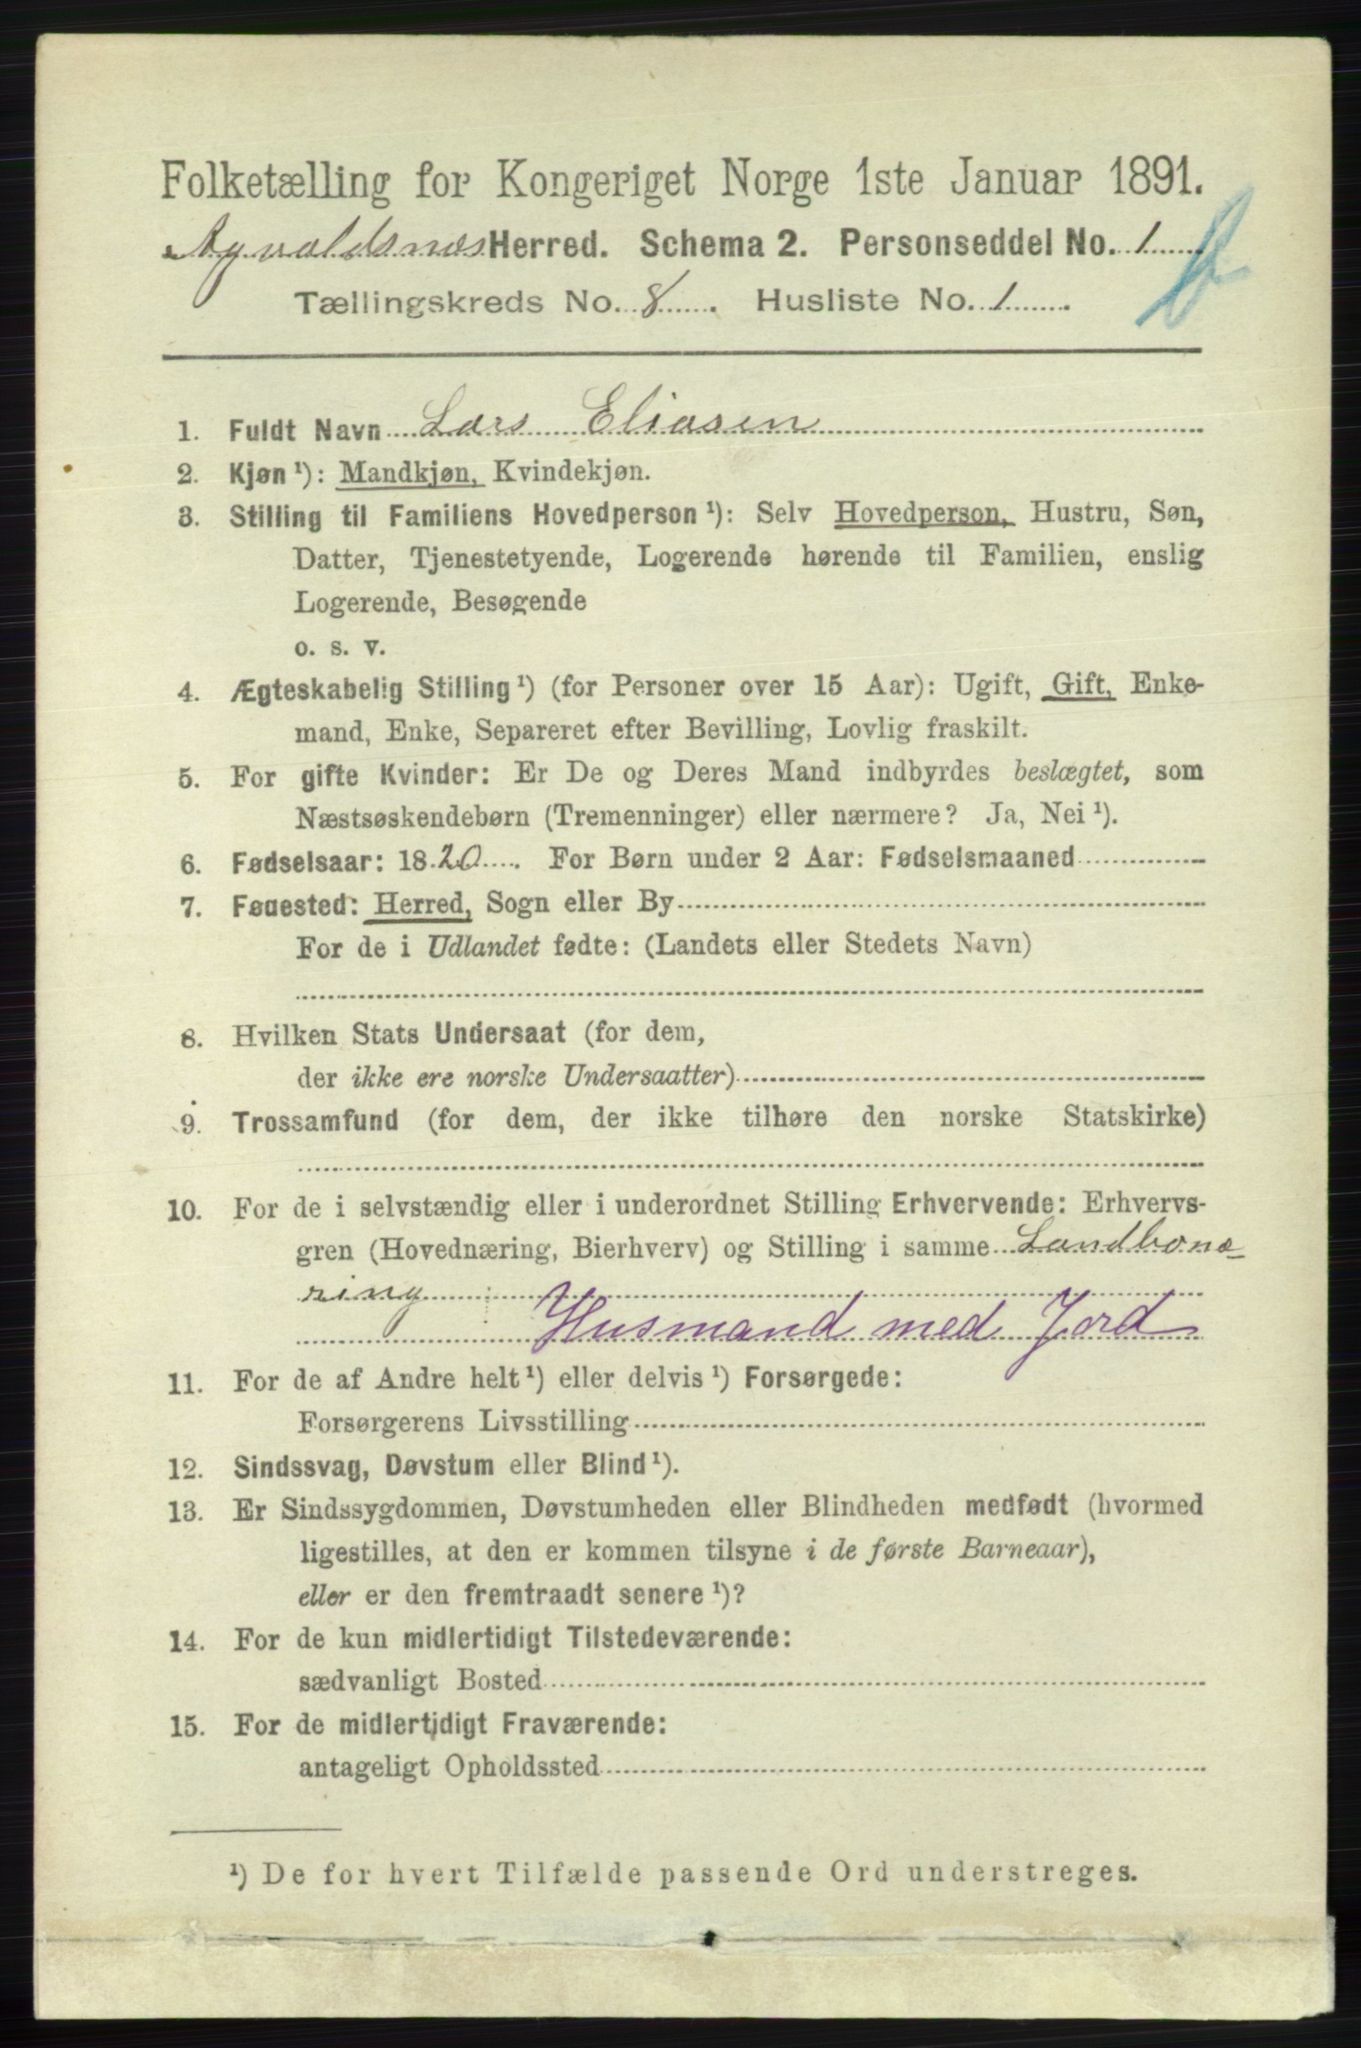 Folketælling for Kongeriget Norge 1ste Januar 1891.
Agvaldsnæs Herred. Schema 2. Personseddel No. 1
Tællingskreds No. 8. Husliste No. 1.
1. Fuldt Navn Lars Eliasen
2. Kjøn ¹): Mandkjøn, Kvindekjøn.
3. Stilling til Familiens Hovedperson ¹): Selv Hovedperson, Hustru, Søn,
Datter, Tjenestetyende, Logerende hørende til Familien, enslig
Logerende, Besøgende
o. s. v.
4. Ægteskabelig Stilling ¹) (for Personer over 15 Aar): Ugift, Gift, Enke-
mand, Enke, Separeret efter Bevilling, Lovlig fraskilt.
5. For gifte Kvinder: Er De og Deres Mand indbyrdes beslægtet, som
Næstsøskendebørn (Tremenninger) eller nærmere? Ja, Nei ¹).
6. Fødselsaar: 1820. For Børn under 2 Aar: Fødselsmaaned
7. Føuested: Herred, Sogn eller By
For de i Udlandet fødte: (Landets eller Stedets Navn)
8. Hvilken Stats Undersaat (for dem,
der ikke ere norske Undersaatter)
9. Trossamfund (for dem, der ikke tilhøre den norske Statskirke)
10. For de i selvstændig eller i underordnet Stilling Erhvervende: Erhvervs-
gren (Hovednæring, Bierhverv) og Stilling i samme Landbonæ-
ring
Husmand med Jord
11. For de af Andre helt ¹) eller delvis ¹) Forsørgede:
Forsørgerens Livsstilling
12. Sindssvag, Døvstum eller Blind ¹).
13. Er Sindssygdommen, Døvstumheden eller Blindheden medfødt (hvormed
ligestilles, at den er kommen tilsyne i de første Barneaar),
eller er den fremtraadt senere ¹)?
14. For de kun midlertidigt Tilstedeværende:
sædvanligt Bosted
15. For de midlertidigt Fraværende:
antageligt Opholdssted
¹) De for hvert Tilfælde passende Ord understreges.